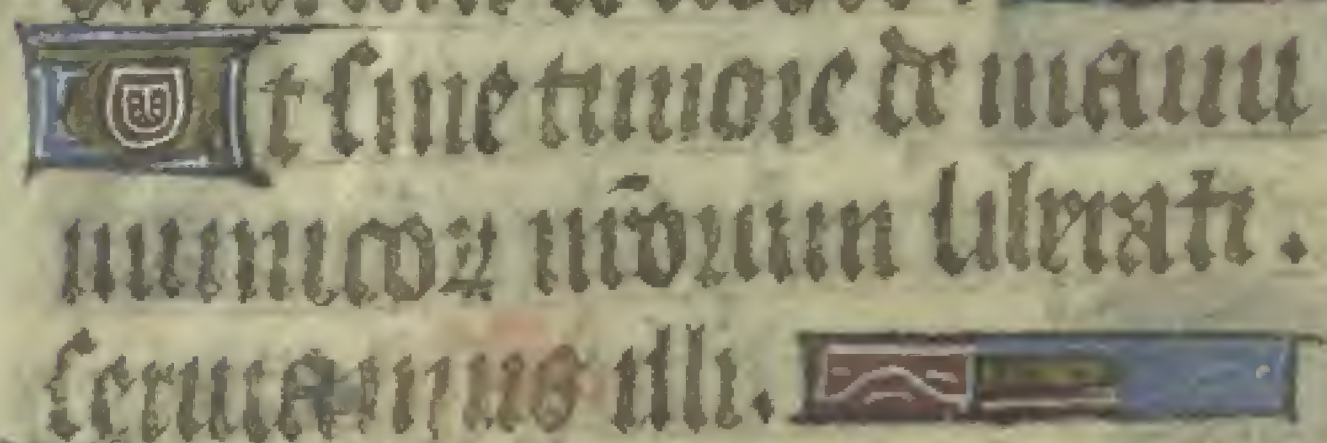 Ut sine timore de manu
inimicoꝝ nr̄orum liberati .
seruiamus illi.